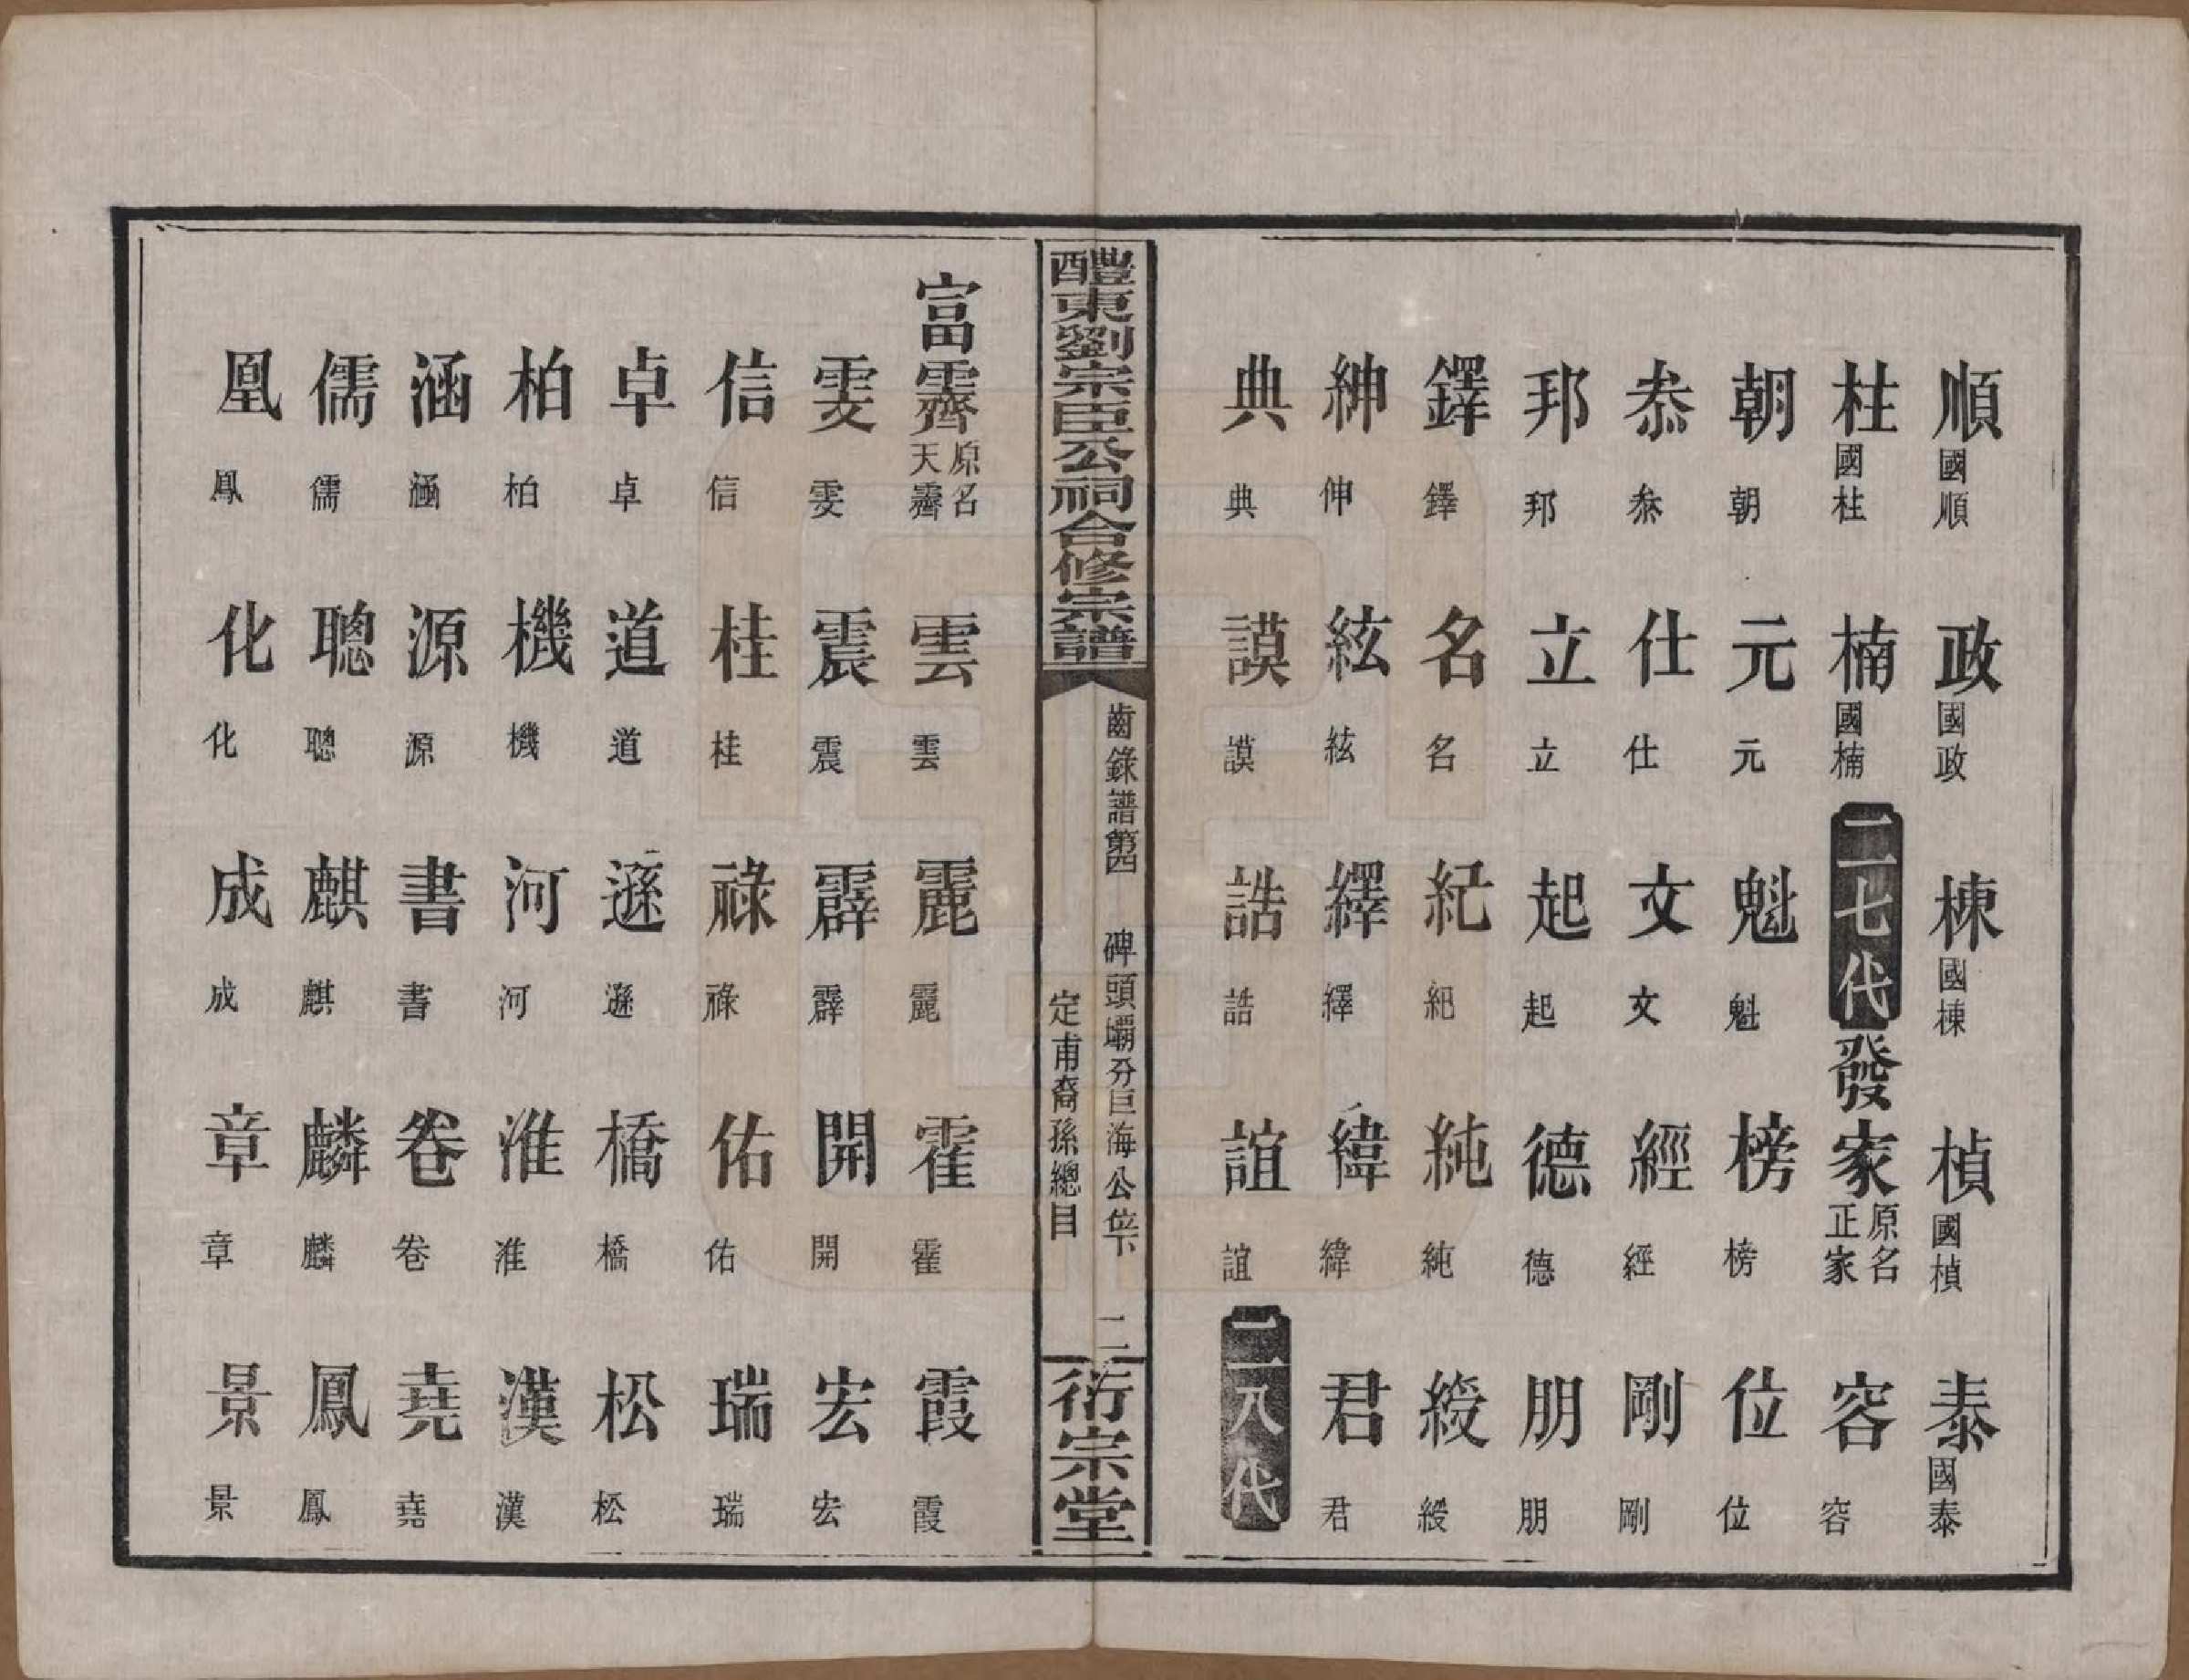 順國順 政國政 棟國棟 楨國楨 泰國泰
桂國桂 楠國楠 二七代 發家原名正家 容容
朝朝 元元 魁魁 榜榜 位位
叅叅 仕仕 文文 經經 剛剛
邦邦 立立 起起 德德 朋朋
鐸鐸 名名 紀紀 純純 綬綬
紳伸 絃絃 繹繹 緯緯 君君
典典 謨謨 誥誥 誼誼 二八代
醴東劉宗臣公祠合修宗譜
齒錄譜第四 碑頭壩分巨海公位下
定甫裔孫總目
二
衍宗堂
富霽原名天霽 雲雲 麗麗 霍霍 霞霞
雯雯 震震 霹霹 開開 宏宏
信信 桂桂 祿祿 佑佑 瑞瑞
卓卓 道道 遜遜 橋橋 松松
柏柏 機機 河河 淮淮 漢漢
涵涵 源源 書書 卷卷 堯堯
儒儒 聰聰 麒麒 麟麟 鳳鳳
凰鳳 化化 成成 章章 景景